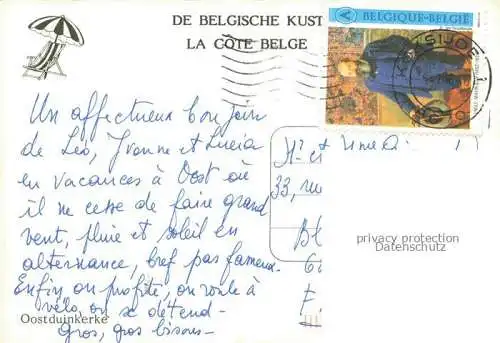 DE BELGISCHE KUST
LA CÔTE BELGE
BELGIQUE-BELGIË
Un affectueux bonjour
de Léo, Yvonne et Lucia
en vacances à Oost où
il ne cesse de faire grand
vent, pluie et soleil en
alternance, bref pas fameux.
Enfin on profite, on roule à
vélo, on se détend-
Gros, gros bisous-
Oostduinkerke
33, rue
privacy protection
Datenschutz